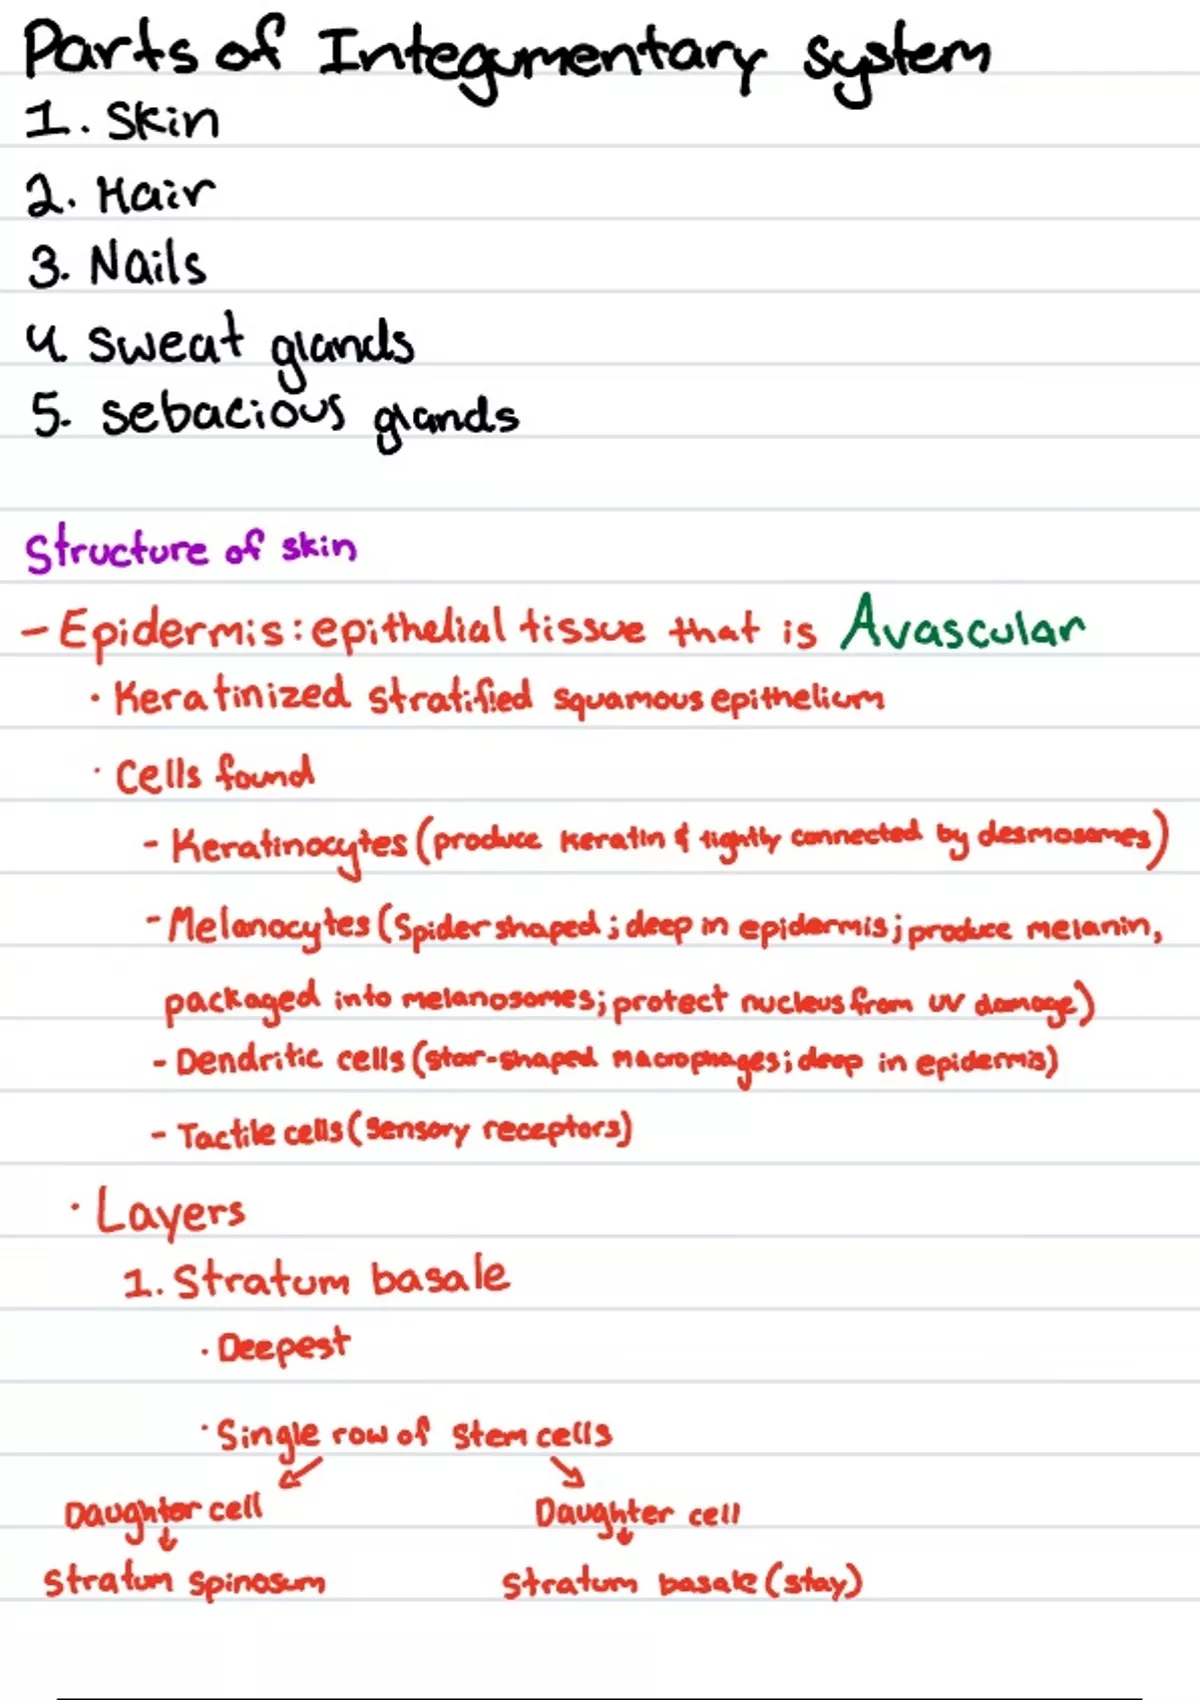 Parts of Integumentary system
1. Skin
2. Hair
3. Nails
4. sweat glands
5. sebacious glands
Structure of skin
- Epidermis: epithelial tissue that is Avascular
· Keratinized stratified squamous epithelium
· Cells found
- Keratinocytes (produce keratin & tightly connected by desmosomes)
- Melanocytes (Spider shaped; deep in epidermis; produce melanin,
packaged into melanosomes; protect nucleus from UV damage)
- Dendritic cells (star-shaped macrophages; deep in epidermis)
- Tactile cells (sensory receptors)
· Layers
1. Stratum basale
· Deepest
· Single row of stem cells
Daughter cell Daughter cell
Stratum spinosum Stratum basale (stay)